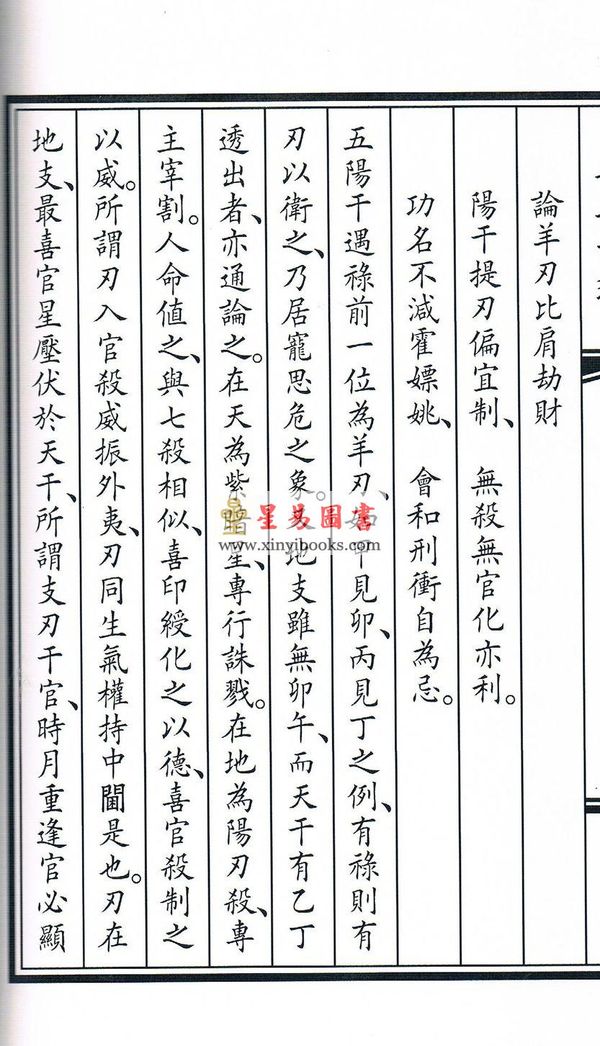 論羊刃比肩劫財
陽干提刃偏宜制、無殺無官化亦利。
功名不減霍嫖姚、會和刑衝自為忌。
五陽干遇祿前一位為羊刃、如甲見卯、丙見丁之例、有祿則有
刃以衛之、乃居寵思危之象。地支雖無卯午、而天干有乙丁
透出者、亦通論之。在天為紫暗星、專行誅戮。在地為陽刃殺、專
主宰割。人命值之、與七殺相似、喜印綬化之以德、喜官殺制之
以威。所謂刃入官殺威振外夷、刃同生氣權持中閫是也。刃在
地支、最喜官星壓伏於天干、所謂支刃干官、時月重逢官必顯
星易圖書
www.xinyibooks.com